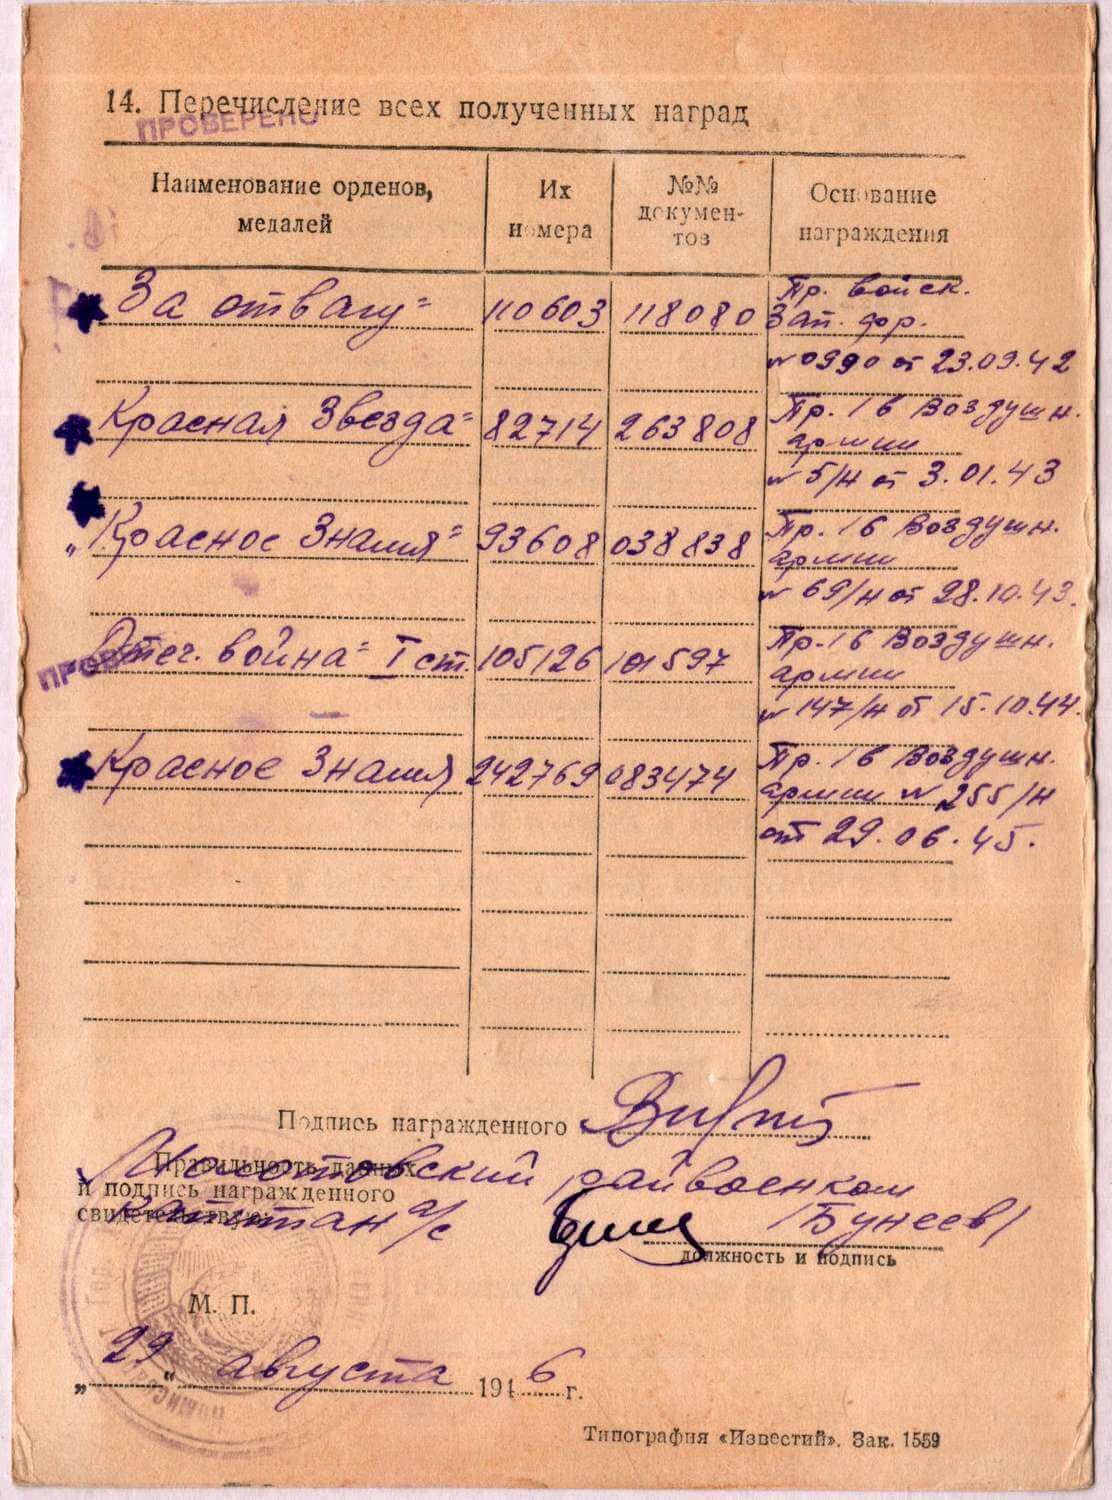 14. Перечисление всех полученных наград
ПРОВЕРЕНО
Наименование орденов, медалей
Их номера
№№ докумен-тов
Основание награждения
За отвагу" 110603 118080 Пр. войск.
Зап. фр.
№ 0990 от 23.09.42
Красная Звезда" 82714 263808 Пр. 16 Воздушн.
армии
№ 5/н от 3.01.43
"Красное Знамя" 93608 038838 Пр. 16 Воздушн.
армии
№ 69/н от 28.10.43.
ПРОВЕ
Отеч. война" I ст. 105126 101597 Пр. 16 Воздушн.
армии
№ 147/н от 15.10.44.
Красное Знамя 242769 083474 Пр. 16 Воздушн.
армии № 255/н
от 29.06.45.
Подпись награжденного
Правильность данных
Молотовский райвоенком
и подпись награжденного
свидетельствую:
капитан а/с /Бунеев/
должность и подпись
М. П.
„29" августа 1946 г.
Типография «Известий». Зак. 1559